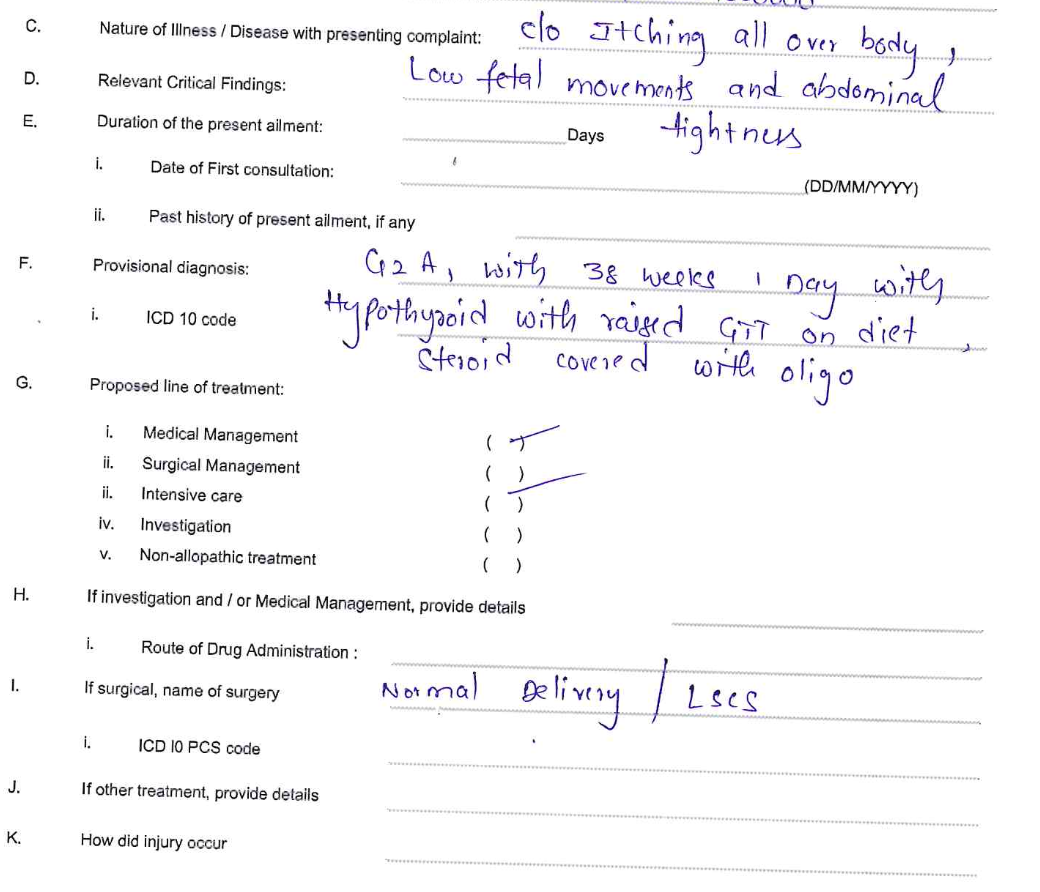 C. Nature of Illness / Disease with presenting complaint: c/o Itching all over body,
D. Relevant Critical Findings: Low fetal movements and abdominal
E. Duration of the present ailment: Days tightness
i. Date of First consultation: (DD/MM/YYYY)
ii. Past history of present ailment, if any
F. Provisional diagnosis: G2 A1 with 38 weeks 1 Day with
i. ICD 10 code Hypothyroid with raised GTT on diet,
Steroid covered with oligo
G. Proposed line of treatment:
i. Medical Management ( )
ii. Surgical Management ( )
ii. Intensive care ( )
iv. Investigation ( )
v. Non-allopathic treatment ( )
H. If investigation and / or Medical Management, provide details
i. Route of Drug Administration :
I. If surgical, name of surgery Normal Delivery / LSCS
i. ICD I0 PCS code
J. If other treatment, provide details
K. How did injury occur